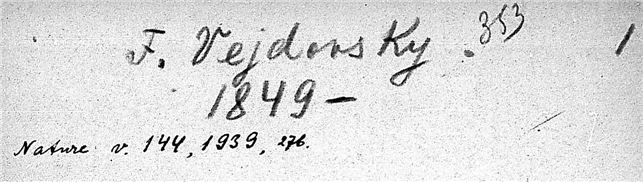 F. Vejdovsky. 353 1
1849 –
Nature v. 144, 1939, 276.